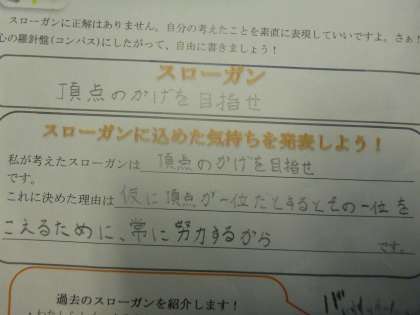 スローガンに正解はありません。自分の考えたことを素直に表現していいですよ。さぁ！
心の羅針盤(コンパス)にしたがって、自由に書きましょう！
スローガン
頂点のかげを目指せ
スローガンに込めた気持ちを発表しよう！
私が考えたスローガンは 頂点のかげを目指せ
です。
これに決めた理由は 仮に頂点が一位だとするとその一位を
こえるために、常に努力するから です。
過去のスローガンを紹介します！